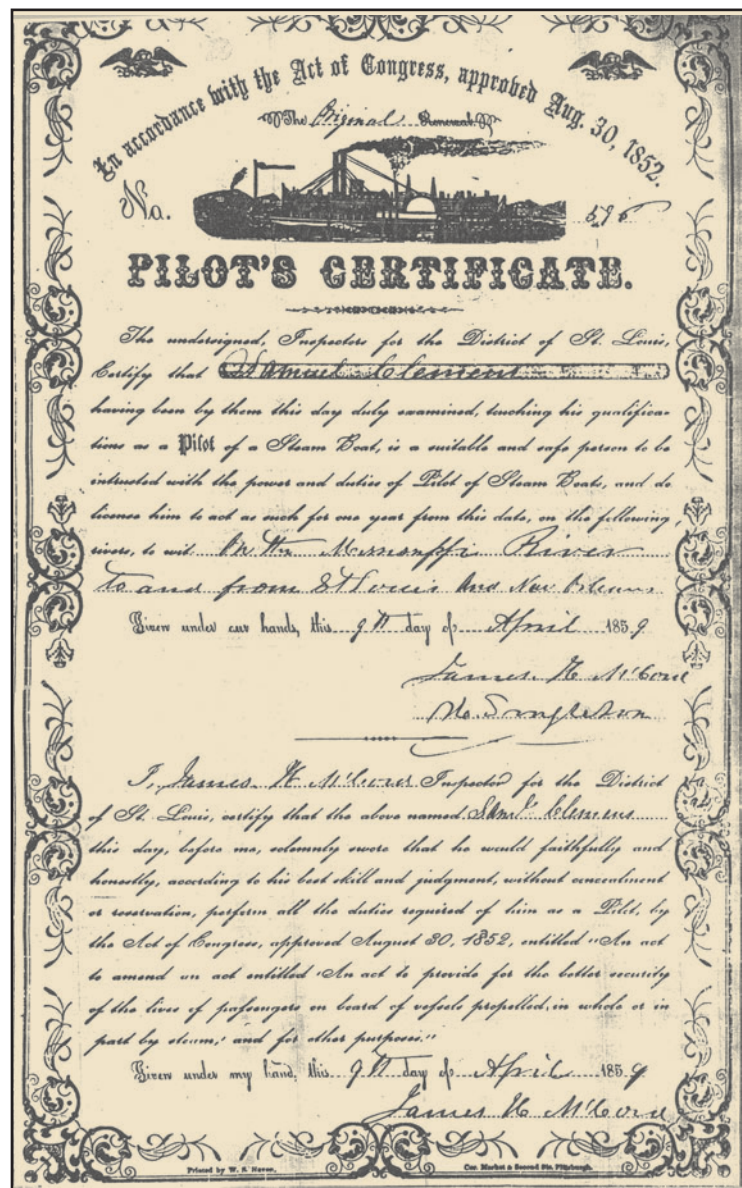 In accordance with the Act of Congress, approved Aug. 30, 1852.
The Original Renewal
No. 596
PILOT'S CERTIFICATE.
The undersigned, Inspectors for the District of St. Louis,
Certify that Samuel Clemens
having been by them this day duly examined, touching his qualifica-
tions as a Pilot of a Steam Boat, is a suitable and safe person to be
intrusted with the power and duties of Pilot of Steam Boats, and do
license him to act as such for one year from this date, on the following,
rivers, to wit On the Mississippi River
to and from St Louis And New Orleans
Given under our hands, this 9th day of April 1859
James H McCord
Singleton
I, James H McCord Inspector for the District
of St. Louis, certify that the above named Saml. Clemens
this day, before me, solemnly swore that he would faithfully and
honestly, according to his best skill and judgment, without concealment
or reservation, perform all the duties required of him as a Pilot, by
the Act of Congress, approved August 30, 1852, entitled "An act
to amend an act entitled 'An act to provide for the better security
of the lives of passengers on board of vessels propelled, in whole or in
part by steam,' and for other purposes."
Given under my hand, this 9th day of April 1859
James H McCord
Printed by W. S. Haven, Cor. Market & Second Sts. Pittsburgh.